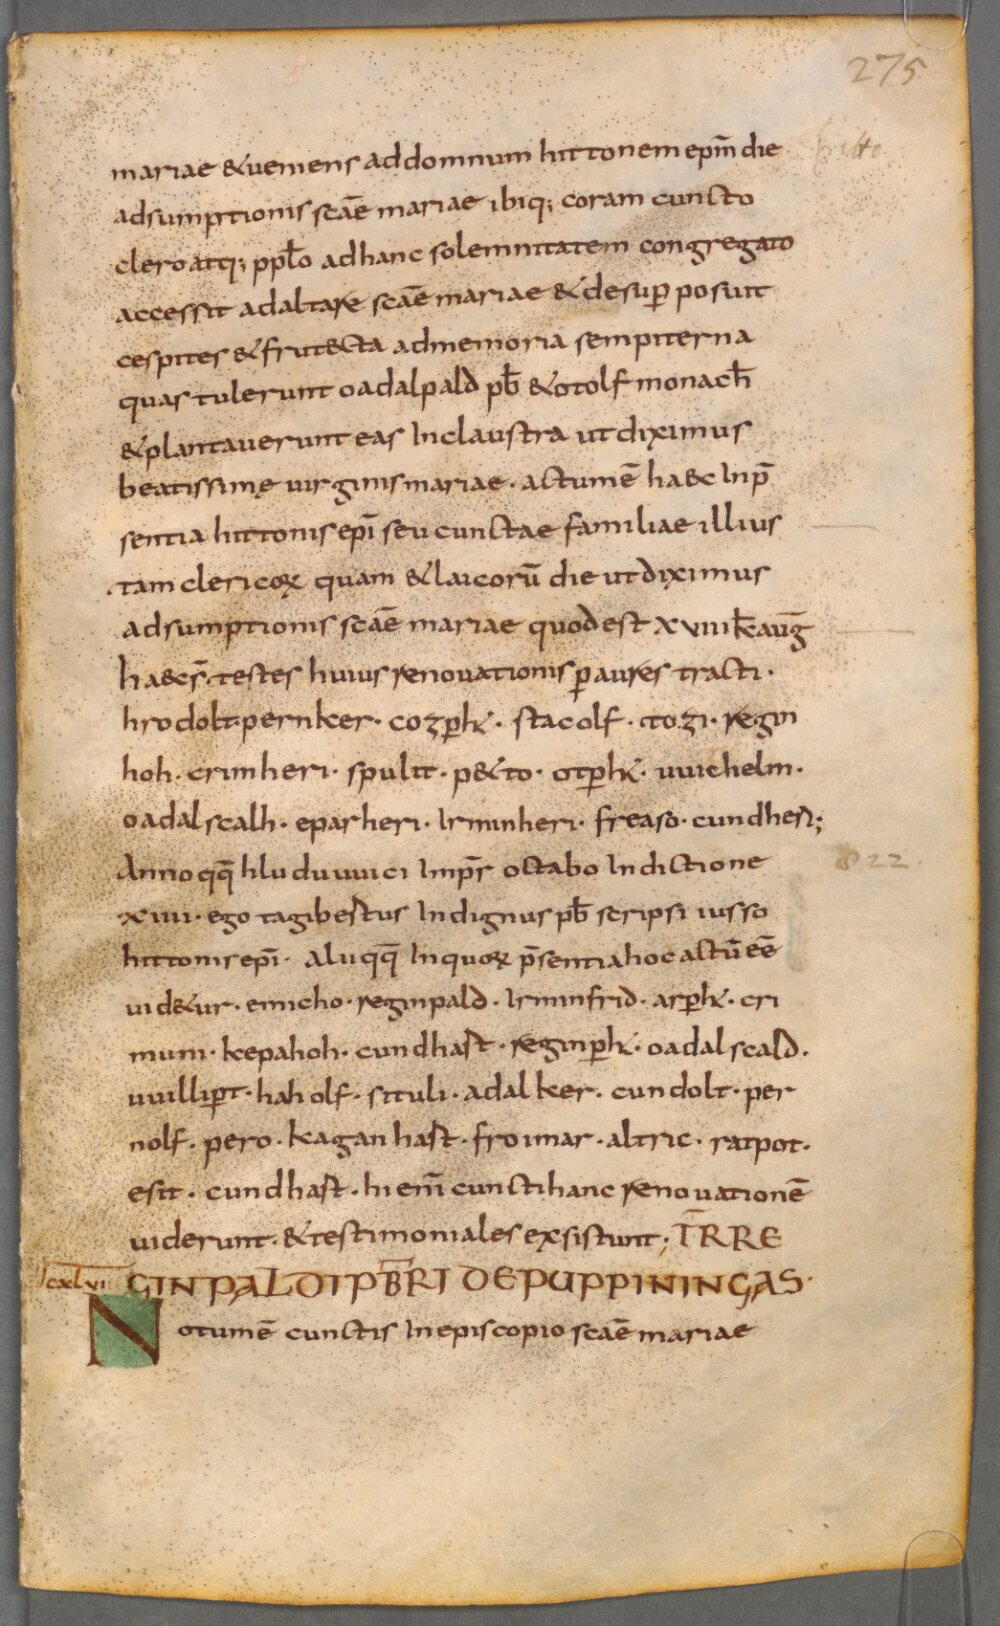 275
mariae & ueniens ad domnum hittonem epm̄ die
hitto
adsumptionis scāe mariae ibiq; coram cuncto
clero atq; ppło ad hanc solemnitatem congregato
accessit ad altare scāe mariae & desup̄ posuit
cespites & frut&cta ad memoria sempiterna
quas tulerunt oadalpald pb̄ & otolf monach̄
& plantauerunt eas In claustra ut diximus
beatissimę uirginis mariae · actum ē ha&c In p̄
sentia hittonis epī seu cunctae familiae illius
tam clericoꝝ quam & laicorū die ut diximus
adsumptionis scāe mariae quod est XVIIII kł auḡ
ha&c s̄ testes huius renouationis ꝑ aures tracti ·
hrodolt · pernker · cozꝑht · stacolf · tozi · regin
hoh · crimheri · spulit · p&to · otꝑht · uuichelm ·
oadalscalh · eparheri · Irminheri · freaso · cundheri;
Anno qq̄ hluduuuici Imp̄r octabo Indictione
822.
XIIII · ego tagibertus Indignus pb̄ scripsi iusso
hittonis epī · aliı qq̄ In quoꝝ p̄sentia hoc actū eē
uid&ur · emicho · reginpald · Irminfrid · arꝑht · cri
muni · kepahoh · cundhart · reginꝑht · oadalscald ·
uuilliꝑt · haholf · situli · adalker · cundolt · per
nolf · pero · kaganhart · froimar · altric · ratpot ·
esit · cundhart · hi eni͞ cuncti hanc renouationē
uiderunt · & testimoniales exsistunt; TR̄ RE
CXLVI GINPALDI PB̄RI DE PUPPININGAS ·
Notum ē cunctis In episcopio scāe mariae